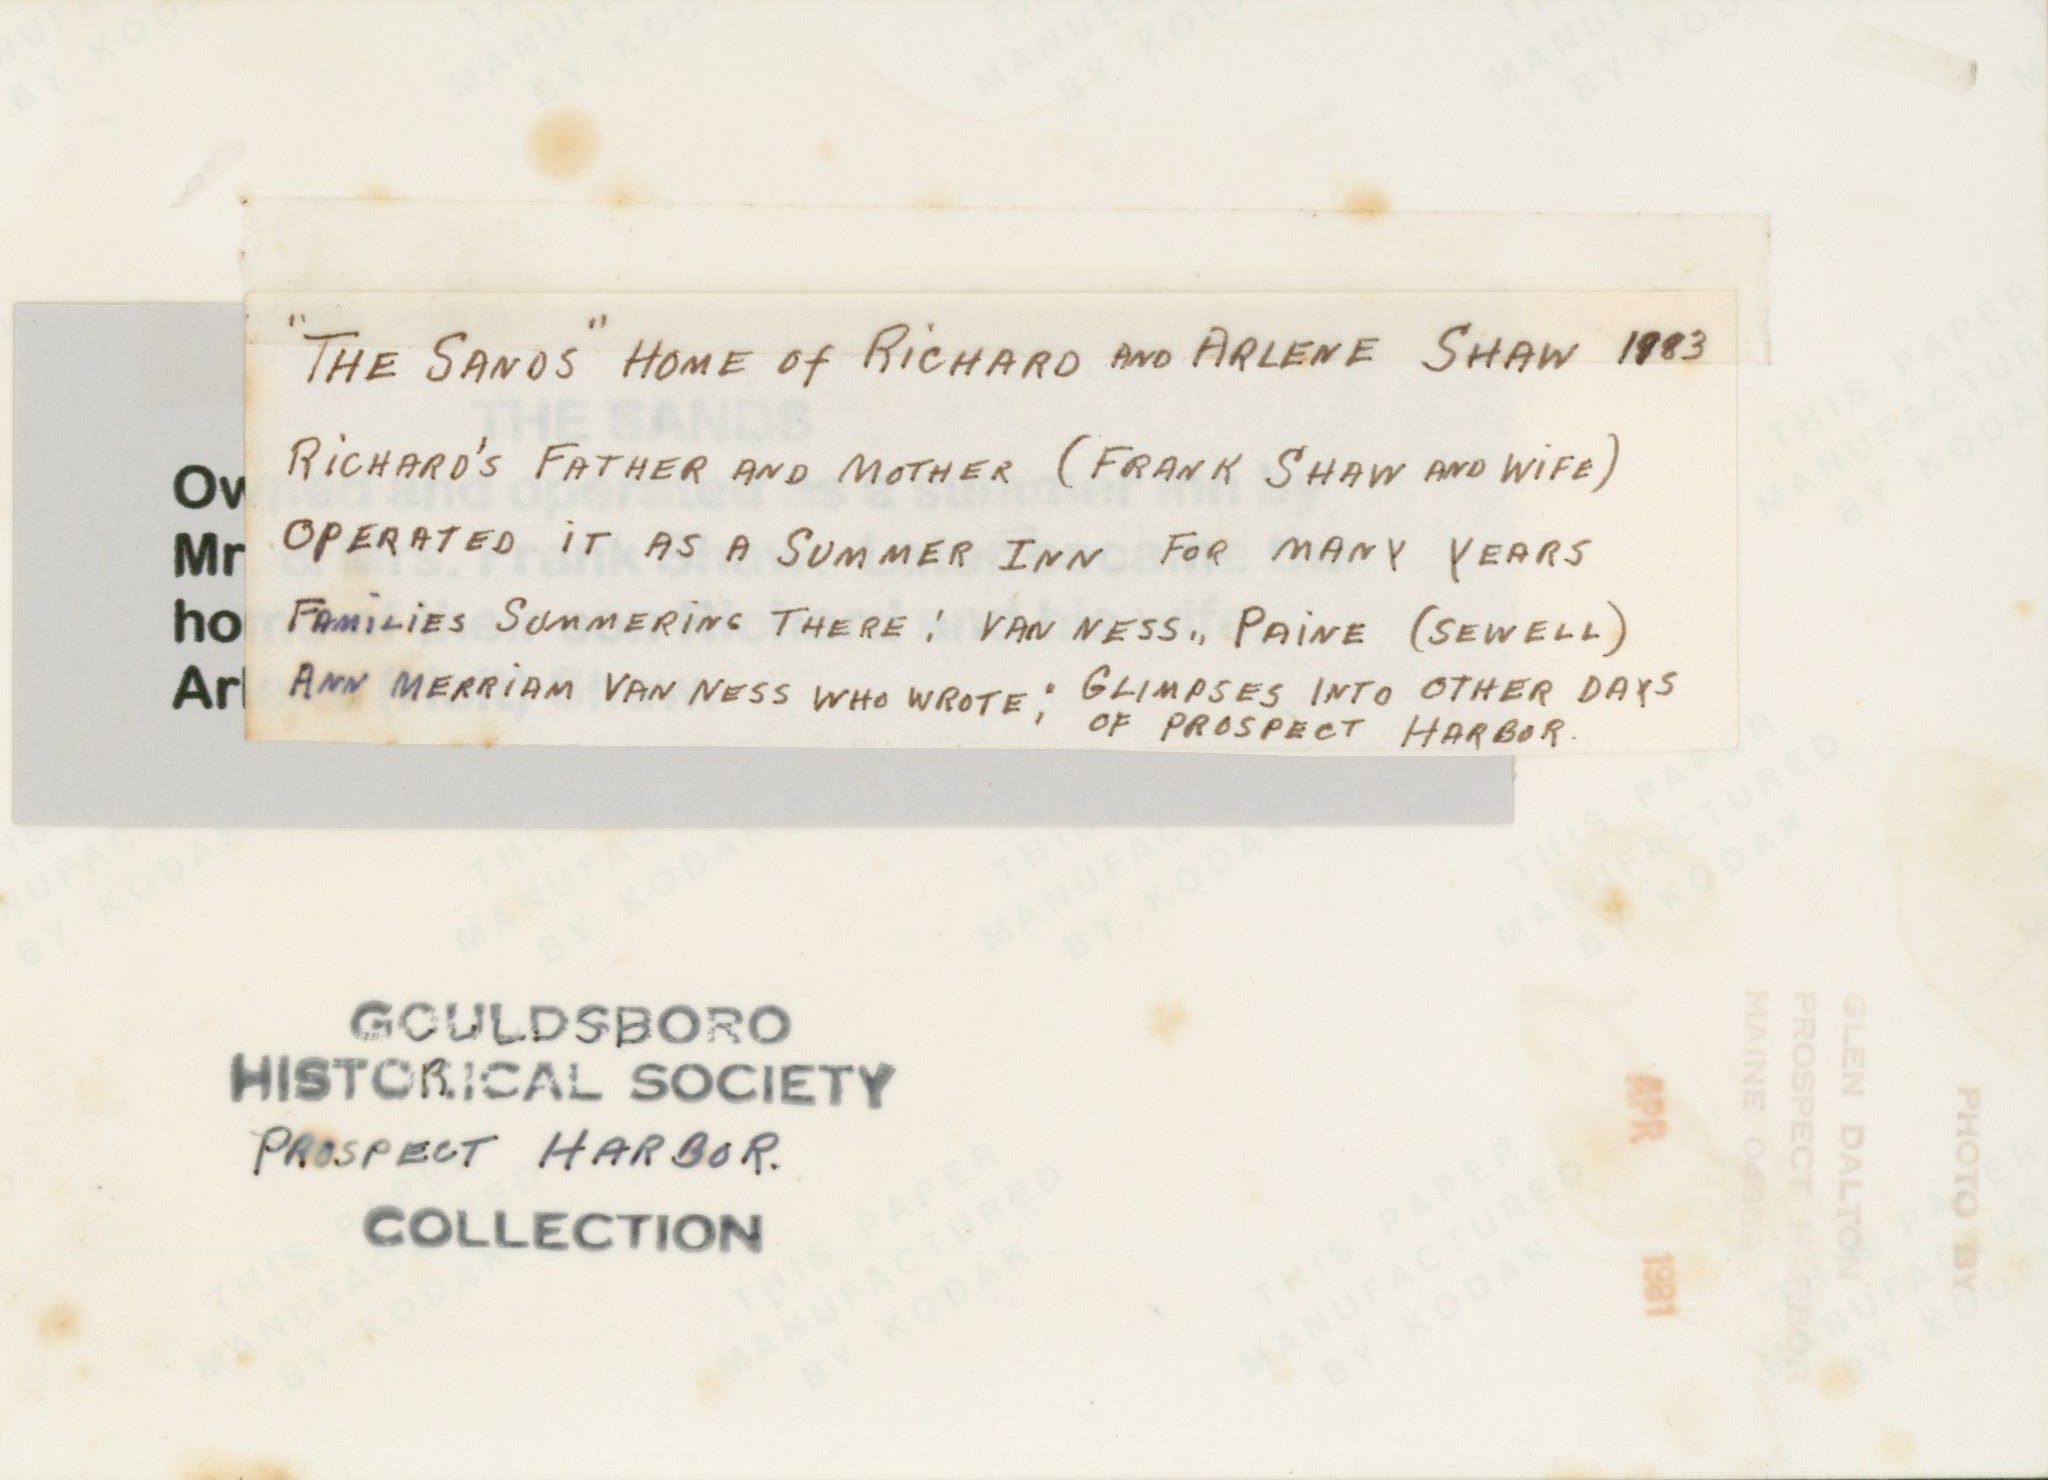 "THE SANDS" HOME OF RICHARD AND ARLENE SHAW 1983
RICHARD'S FATHER AND MOTHER (FRANK SHAW AND WIFE)
OPERATED IT AS A SUMMER INN FOR MANY YEARS
FAMILIES SUMMERING THERE: VAN NESS., PAINE (SEWELL)
ANN MERRIAM VAN NESS WHO WROTE: GLIMPSES INTO OTHER DAYS
OF PROSPECT HARBOR.
THE SANDS
Owned and operated as a summer inn by
GOULDSBORO
HISTORICAL SOCIETY
PROSPECT HARBOR.
COLLECTION
PHOTO BY
GLEN DALTON
PROSPECT HARBOR
MAINE
APR 1981
THIS PAPER
MANUFACTURED
BY KODAK